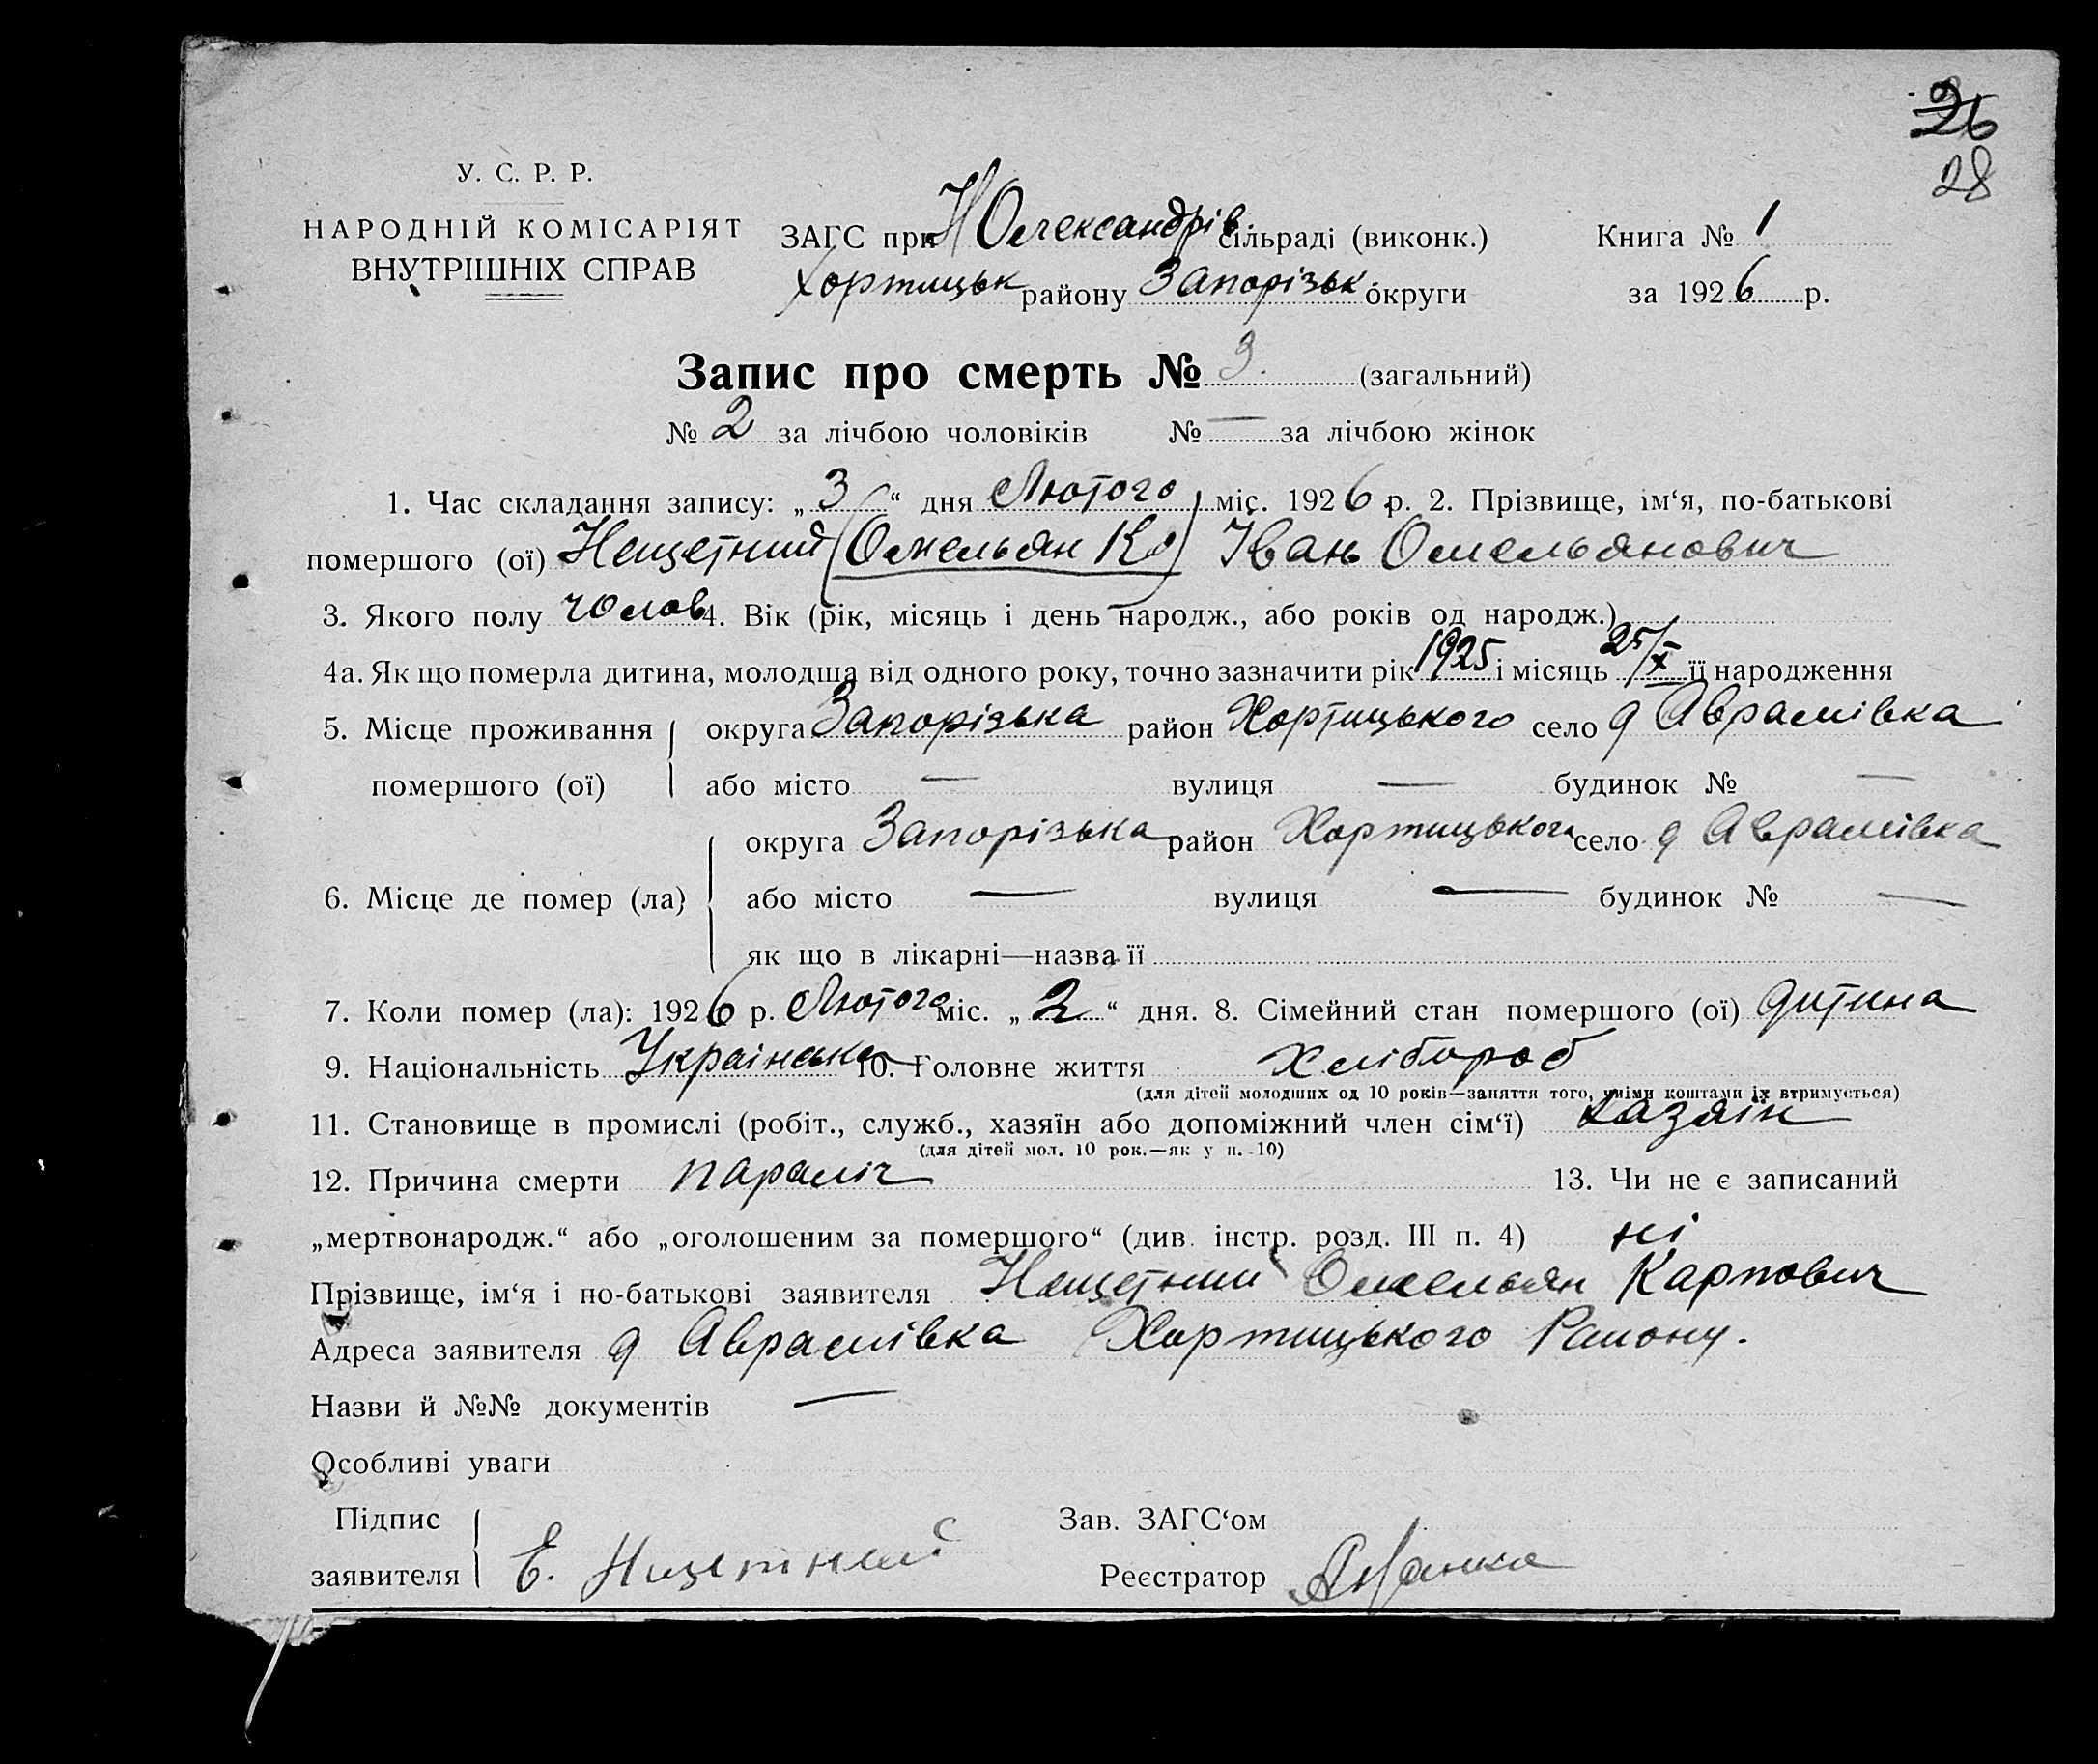 26
28
У. С. Р. Р.
НАРОДНІЙ КОМІСАРІЯТ
ВНУТРІШНІХ СПРАВ
ЗАГС при Н Олександрів. сільраді (виконк.)
Хортицьк району Запорізьк. округи
Книга № 1
за 1926 р.
Запис про смерть № 3. (загальний)
№ 2 за лічбою чоловіків № — за лічбою жінок
1. Час складання запису: „3“ дня Лютого міс. 1926 р. 2. Прізвище, ім‘я, по-батькові
помершого (ої) Нещетний (Омельян Ка) Івань Омельянович
3. Якого полу чолов 4. Вік (рік, місяць і день народж., або років од народж.)
4а. Як що померла дитина, молодша від одного року, точно зазначити рік 1925 і місяць 25/X її народження
5. Місце проживання помершого (ої) округа Запорізька район Хортицького село д Аврамівка
або місто — вулиця — будинок № —
6. Місце де помер (ла) округа Запорізька район Хортицького село д Аврамівка
або місто — вулиця — будинок № —
як що в лікарні—назва її
7. Коли помер (ла): 1926 р. Лютого міс. „2“ дня. 8. Сімейний стан помершого (ої) дитина
9. Національність Українська 10. Головне життя Хлібороб
(для дітей молодших од 10 років—заняття того, чиїми коштами їх втримується)
11. Становище в промислі (робіт., служб., хазяїн або допоміжний член сім‘ї) Хазяїн
(для дітей мол. 10 рок.—як у п. 10)
12. Причина смерти параліч 13. Чи не є записаний
„мертвонародж.“ або „оголошеним за помершого“ (див. інстр. розд. III п. 4) ні
Прізвище, ім‘я і по-батькові заявителя Нещетний Омельян Карпович
Адреса заявителя д Аврамівка Хортицького Району.
Назви й №№ документів —
Особливі уваги
Підпис заявителя Е. Нищетний
Зав. ЗАГС‘ом
Реєстратор